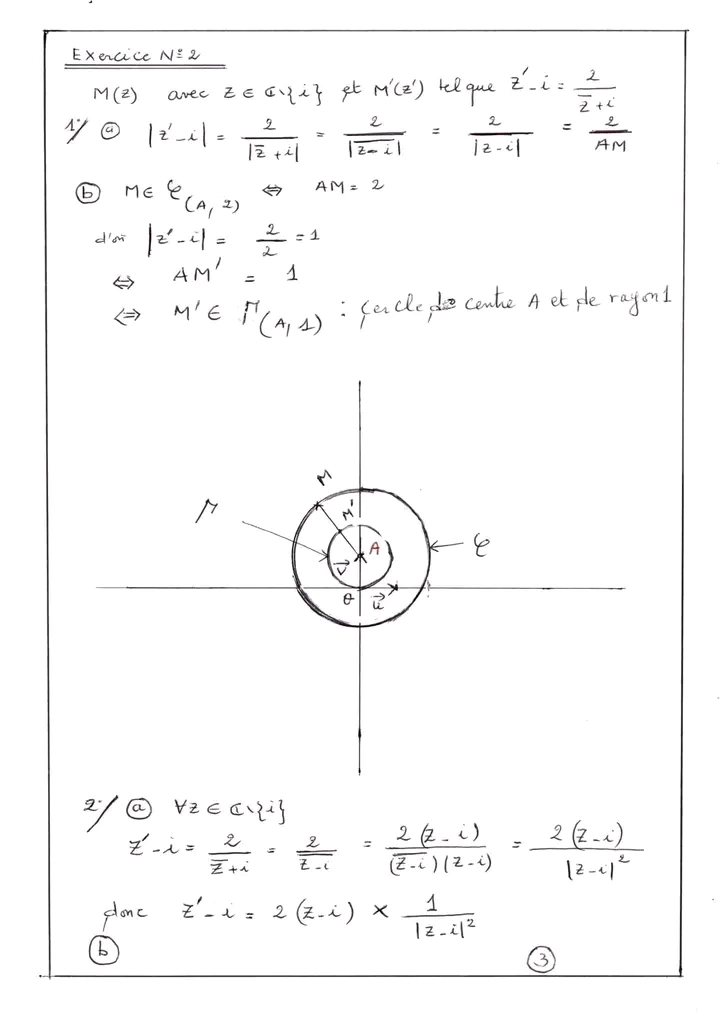 Exercice N° 2
M(z) avec z ∈ ℂ\{i} et M'(z') tel que z' - i = 2/(z̅ + i)
1°/ ⓐ |z' - i| = 2/|z̅ + i| = 2/|z̅ - i̅| = 2/|z - i| = 2/AM
ⓑ M ∈ 𝒞(A, 2) ⇔ AM = 2
d'où |z' - i| = 2/2 = 1
⇔ AM' = 1
⇔ M' ∈ Γ(A, 1) : cercle de centre A et de rayon 1
M
Γ
M'
A
𝒞
v⃗
O
u⃗
2°/ ⓐ ∀z ∈ ℂ\{i}
z' - i = 2/(z̅ + i) = 2/(z̅ - i̅) = 2(z - i)/((z̅ - i̅)(z - i)) = 2(z - i)/|z - i|²
donc z' - i = 2(z - i) × 1/|z - i|²
ⓑ
③